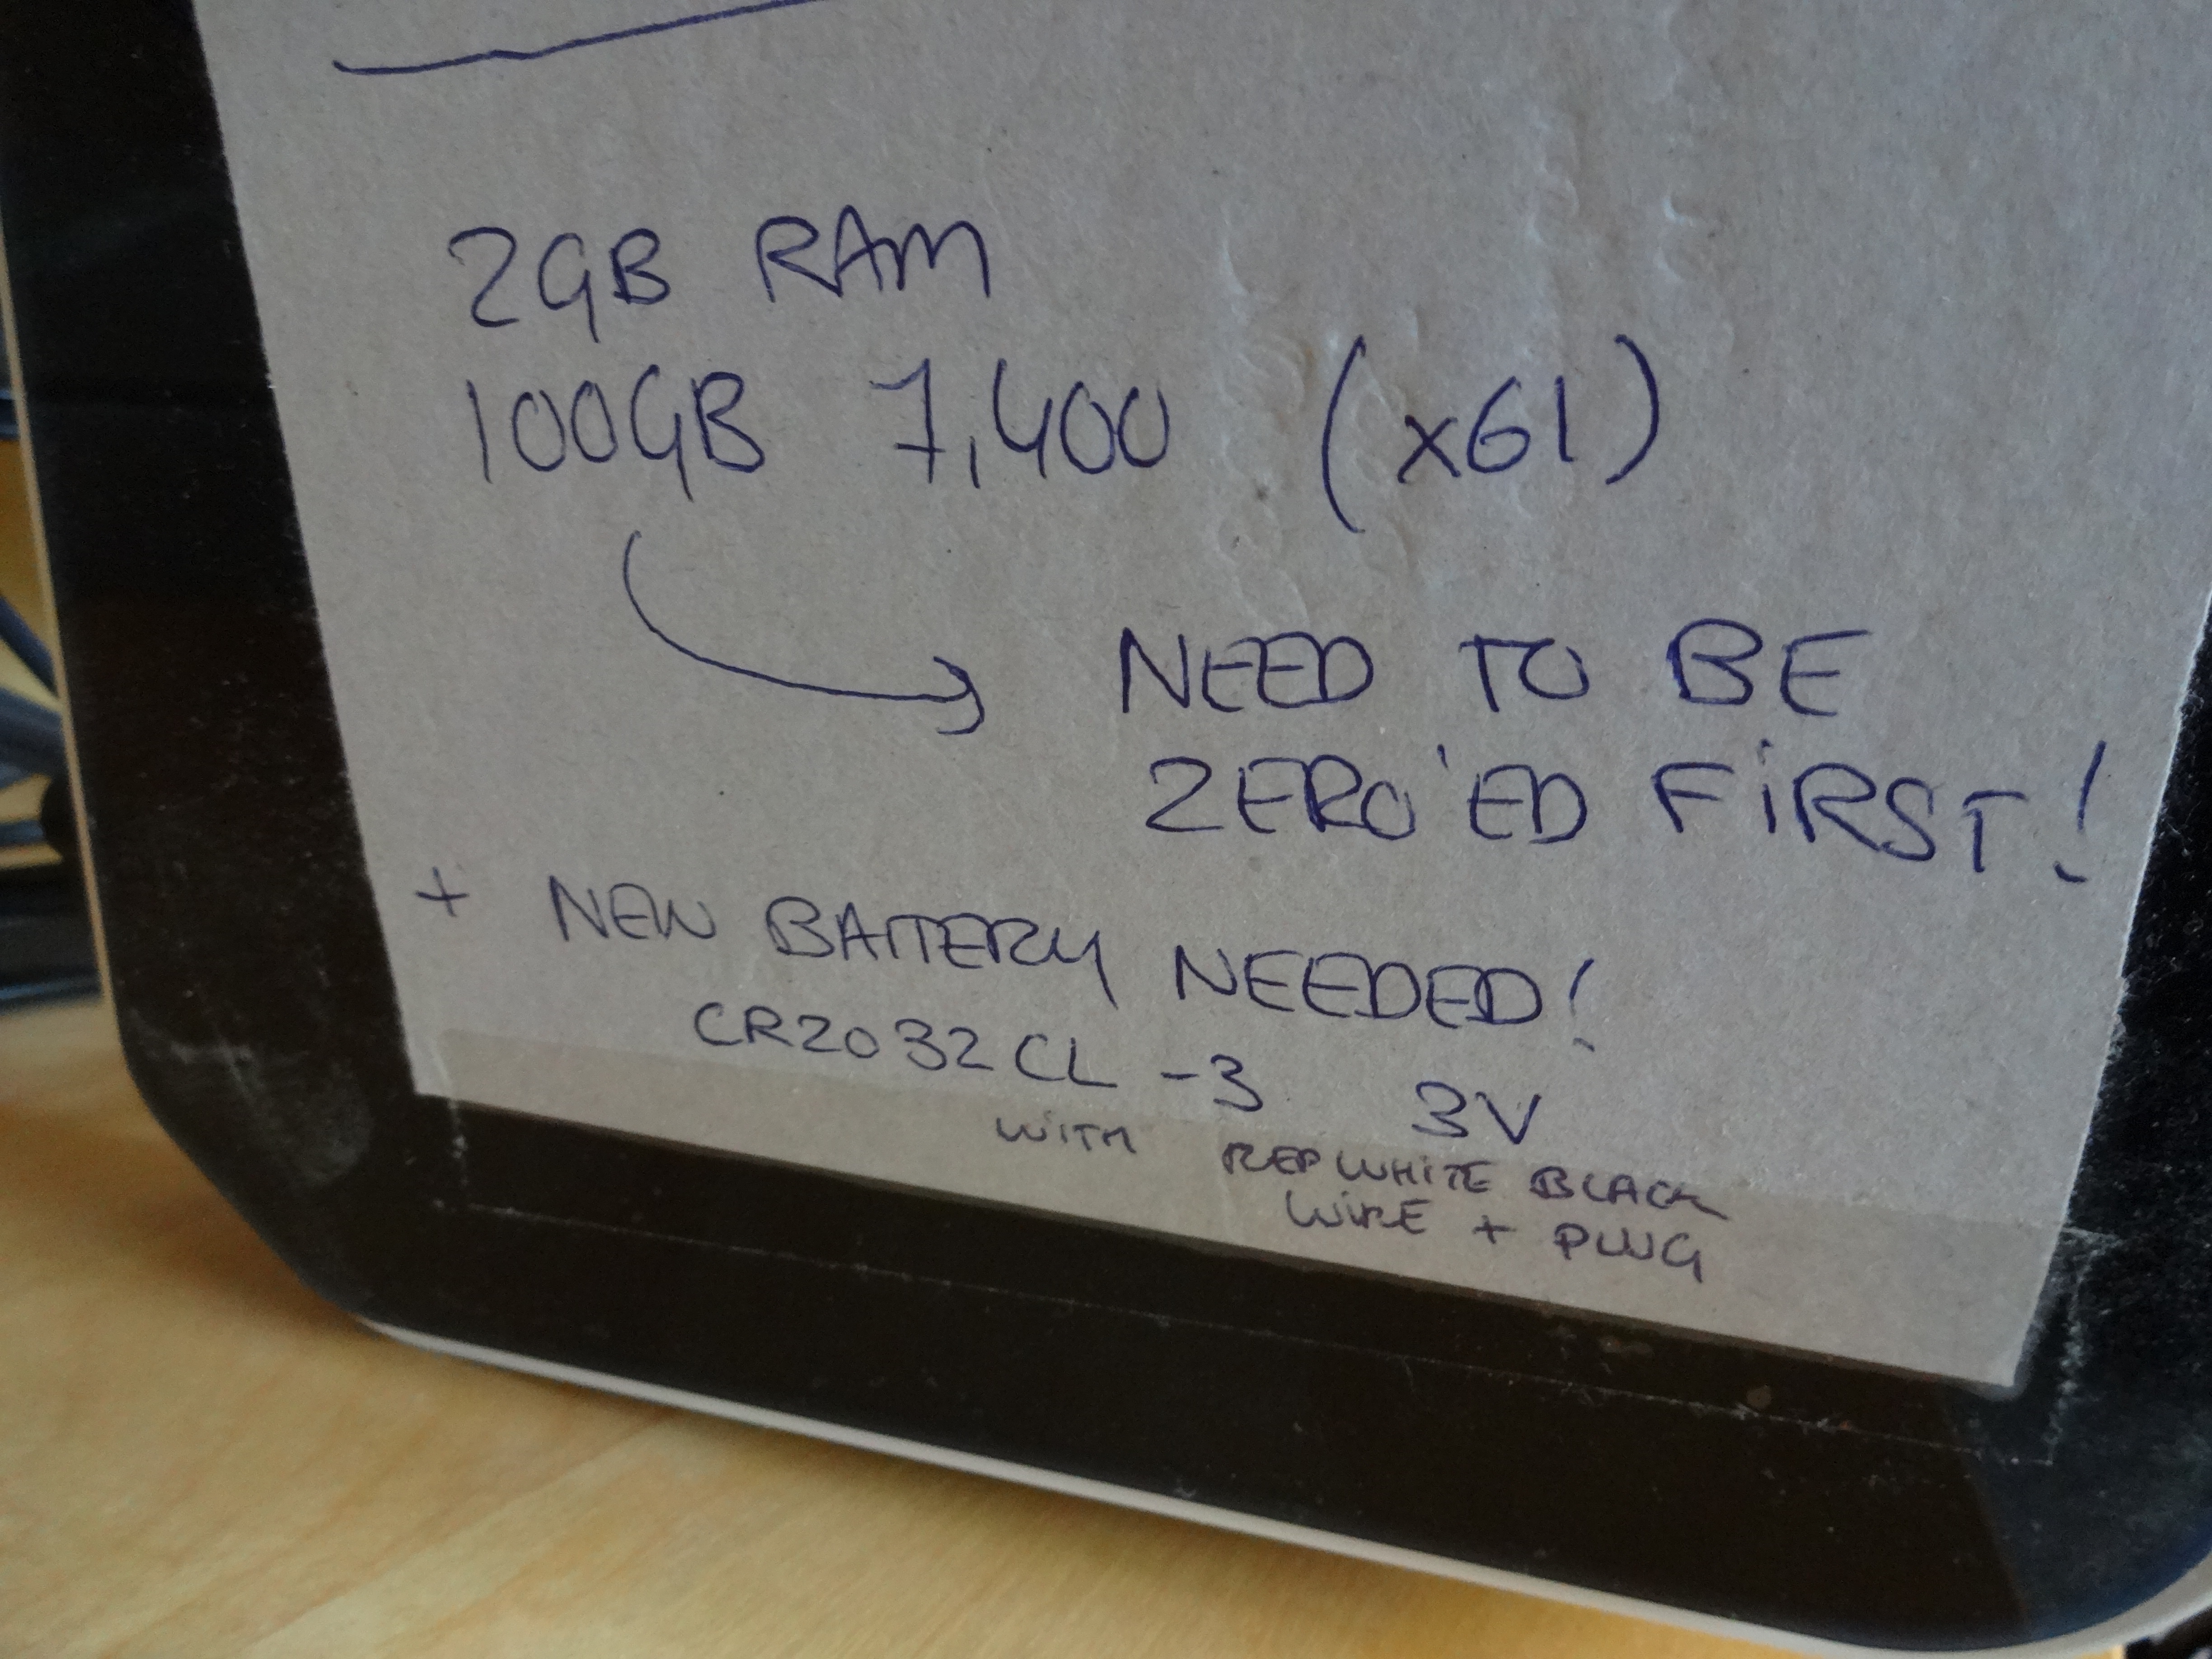 2GB RAM
100GB 7,400 (x61)
NEED TO BE
ZERO'ED FIRST!
+ NEW BATTERY NEEDED!
CR2032CL-3 3V
WITH RED WHITE BLACK
WIRE + PLUG